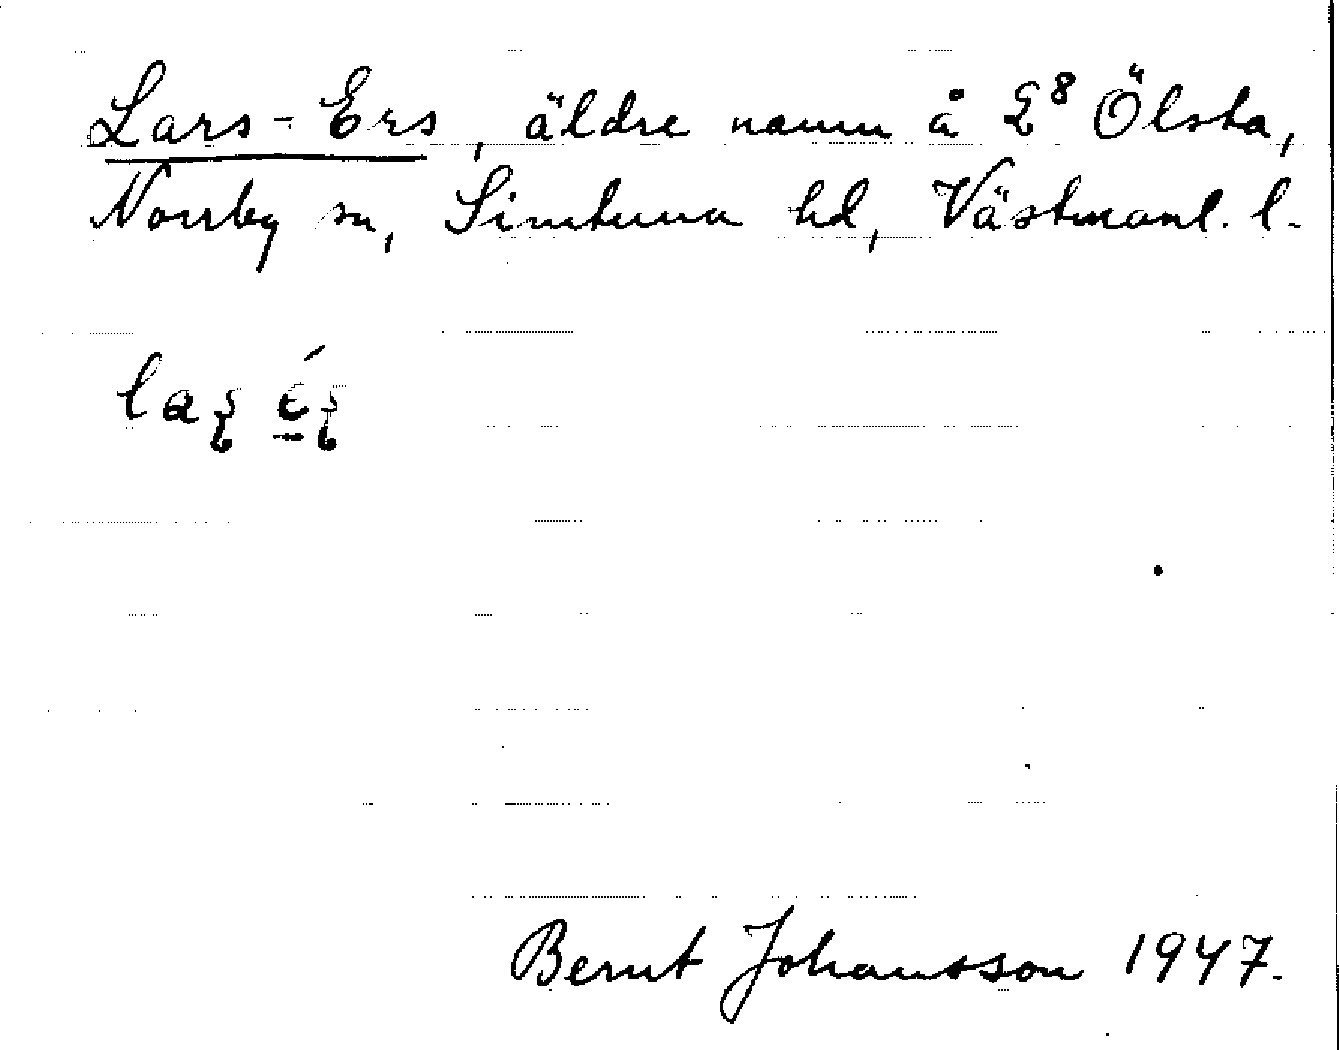 Lars-Ers, äldre namn å 2⁸ Ölsta,
Norrby sn, Simtuna hd, Västmanl. l.
Bernt Johansson 1947.